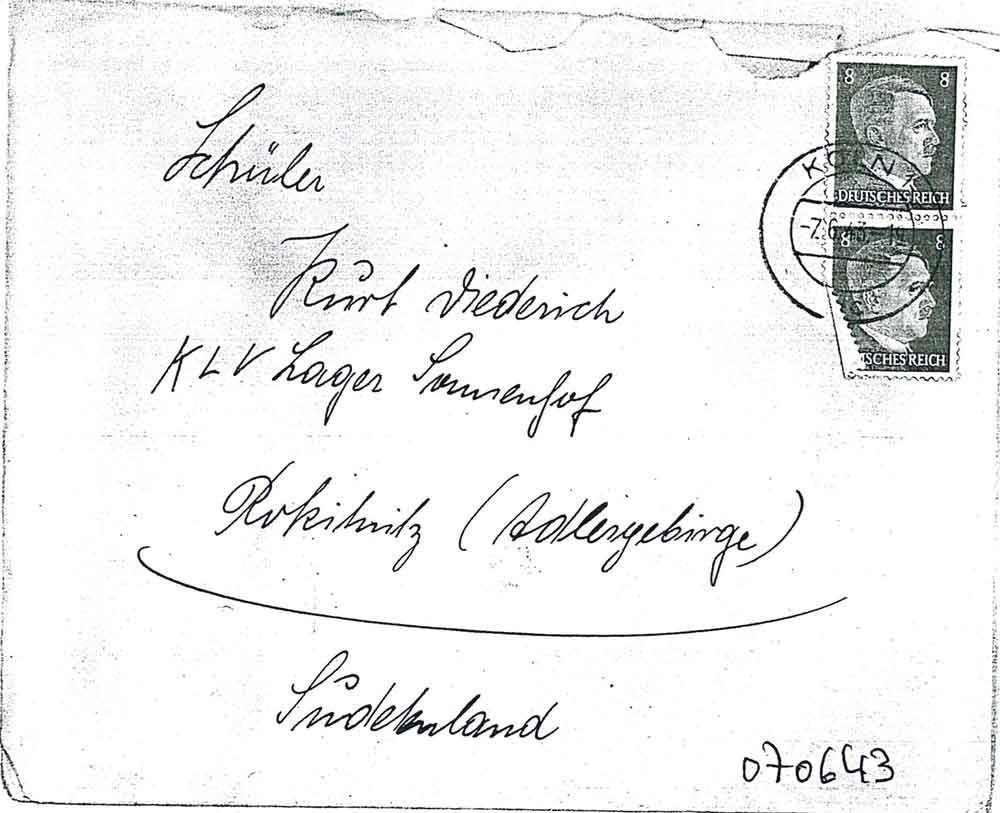 8 8
DEUTSCHES REICH
KÖLN 1
-7.6.43
8 8
TSCHES REICH
Schüler
Kurt Diederich
KLV Lager Sonnenhof
Rokitnitz (Adlergebirge)
Sudetenland
070643